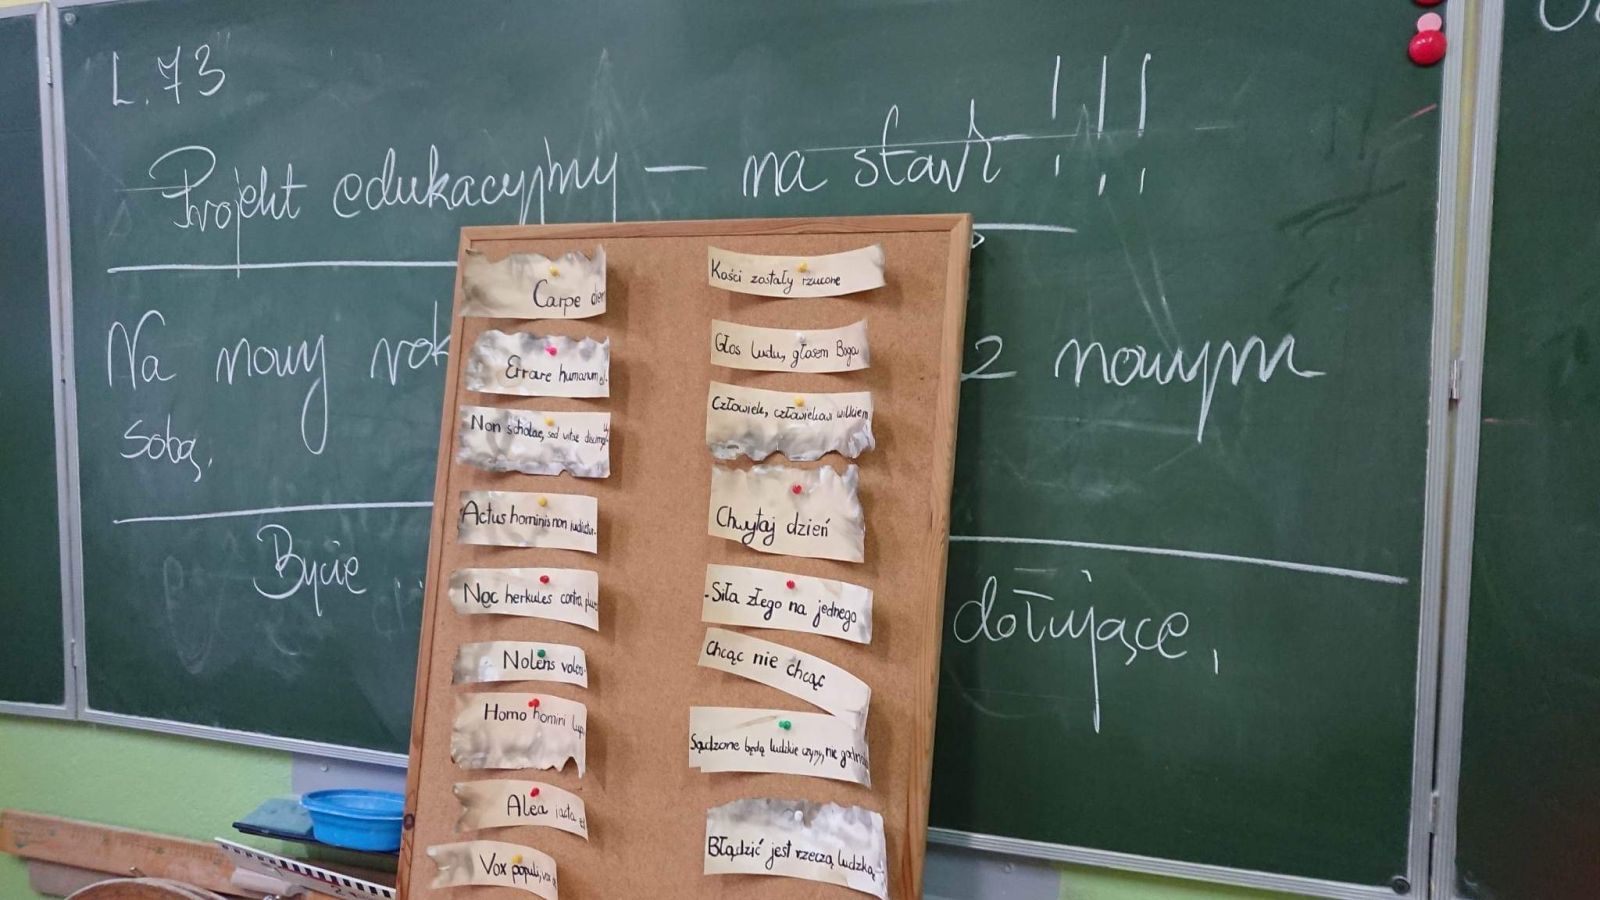 L. 73
Projekt edukacyjny — na start !!!
Na nowy rok z nowym
sobą.
Bycie dołujące,
Carpe
Errare humanum
Non scholae, sed vitae
Actus hominis non
Nec herkules contra
Nolens volens
Homo homini
Alea iacta
Vox populi,
Kości zostały rzucone
Głos ludu, głosem Boga
Człowiek, człowiekowi wilkiem
Chwytaj dzień
-Siła złego na jednego
Chcąc nie chcąc
Sądzone będą ludzkie czyny, nie
Błądzić jest rzeczą ludzką